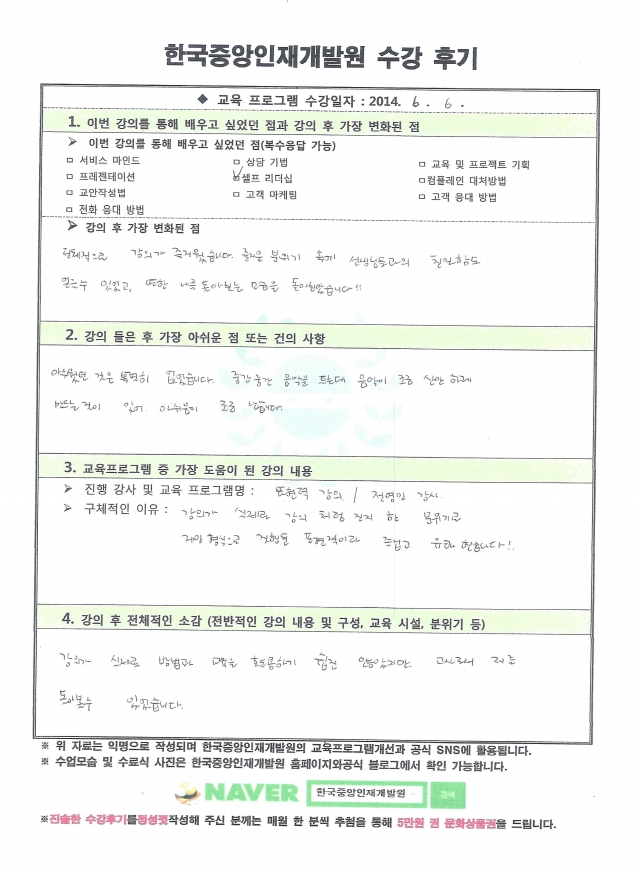 한국중앙인재개발원 수강 후기
◆ 교육 프로그램 수강일자 : 2014. 6. 6.
1. 이번 강의를 통해 배우고 싶었던 점과 강의 후 가장 변화된 점
➤ 이번 강의를 통해 배우고 싶었던 점(복수응답 가능)
□ 서비스 마인드 □ 상담 기법 □ 교육 및 프로젝트 기획
□ 프레젠테이션 ☑셀프 리더십 □컴플레인 대처방법
□ 교안작성법 □ 고객 마케팅 □ 고객 응대 방법
□ 전화 응대 방법
➤ 강의 후 가장 변화된 점
전체적으로 강의가 즐거웠습니다. 즐거운 분위기 속에 선생님들과의 친밀함도
있었고, 또한 나를 돌아보는
2. 강의 들은 후 가장 아쉬운 점 또는 건의 사항
아쉬웠던 것은 특별히 없었습니다. 중간중간 음악을 트는데 음악이 조금 산만 하게
만드는 것이 있어 아쉬움이 조금 남습니다.
3. 교육프로그램 중 가장 도움이 된 강의 내용
➤ 진행 강사 및 교육 프로그램명 : 표현력 강의 / 전영민 강사.
➤ 구체적인 이유 : 강의가 실제로 강의 처럼 진지 한 분위기로
게임 형식으로 진행된 즐겁고 유쾌 했습니다!.
4. 강의 후 전체적인 소감 (전반적인 강의 내용 및 구성, 교육 시설, 분위기 등)
강의가 방법과 힘든 교사로서 
돌아볼수 있었습니다.
※ 위 자료는 익명으로 작성되며 한국중앙인재개발원의 교육프로그램개선과 공식 SNS에 활용됩니다.
※ 수업모습 및 수료식 사진은 한국중앙인재개발원 홈페이지와공식 블로그에서 확인 가능합니다.
NAVER 한국중앙인재개발원 검색
※진솔한 수강후기를정성껏작성해 주신 분께는 매월 한 분씩 추첨을 통해 5만원 권 문화상품권을 드립니다.